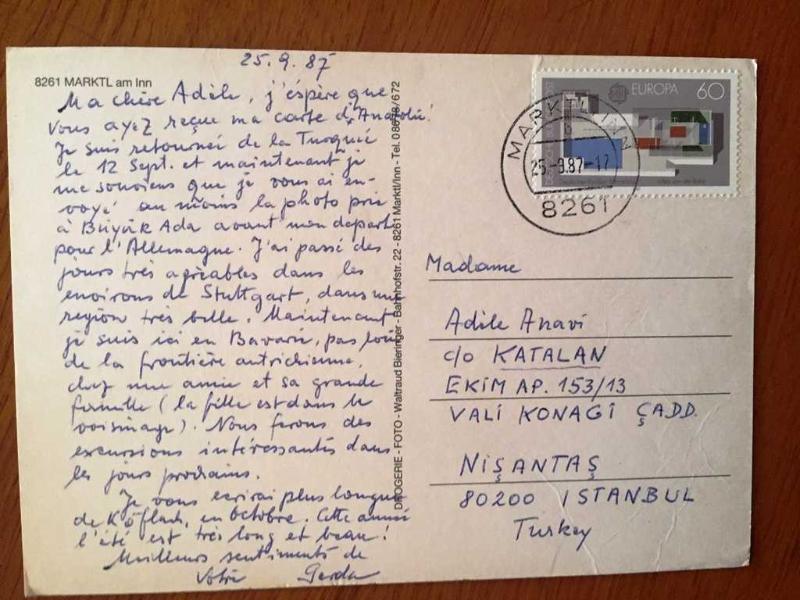 25.9.87
8261 MARKTL am Inn
Ma chère Adèle, j'espère que
vous ayez reçue ma carte d'Anatolie!
Je suis retournée de la Turquie
le 12 Sept. et maintenant je
me souviens que je vous ai en-
voyé au moins la photo pris
à Büyük Ada avant mon départ
pour l'Allemagne. J'ai passé des
jours très agréables dans les
environs de Stuttgart, dans une
region très belle. Maintenant
je suis ici en Bavaria, pas loin
de la frontière autrichienne,
chez une amie et sa grande
famille (la fille est dans le
voisinage). Nous ferons des
excursions intéressantes dans
les jours prochains.
Je vous ecrirai plus longue
de Köflach, en octobre. Cette année
l'été est très long et beau!
Meilleurs sentiments de
Votre Gerda
DROGERIE - FOTO - Waltraud Bieringer - Bahnhofstr. 22 - 8261 Marktl/Inn - Tel. 08678/672
EUROPA 60
MARKTL, INN
b
25.-9.87-17
8261
Madame
Adile Anavi
c/o KATALAN
EKIM AP. 153/13
VALI KONAGI ÇADD.
NIŞANTAŞ
80200 ISTANBUL
Turkey